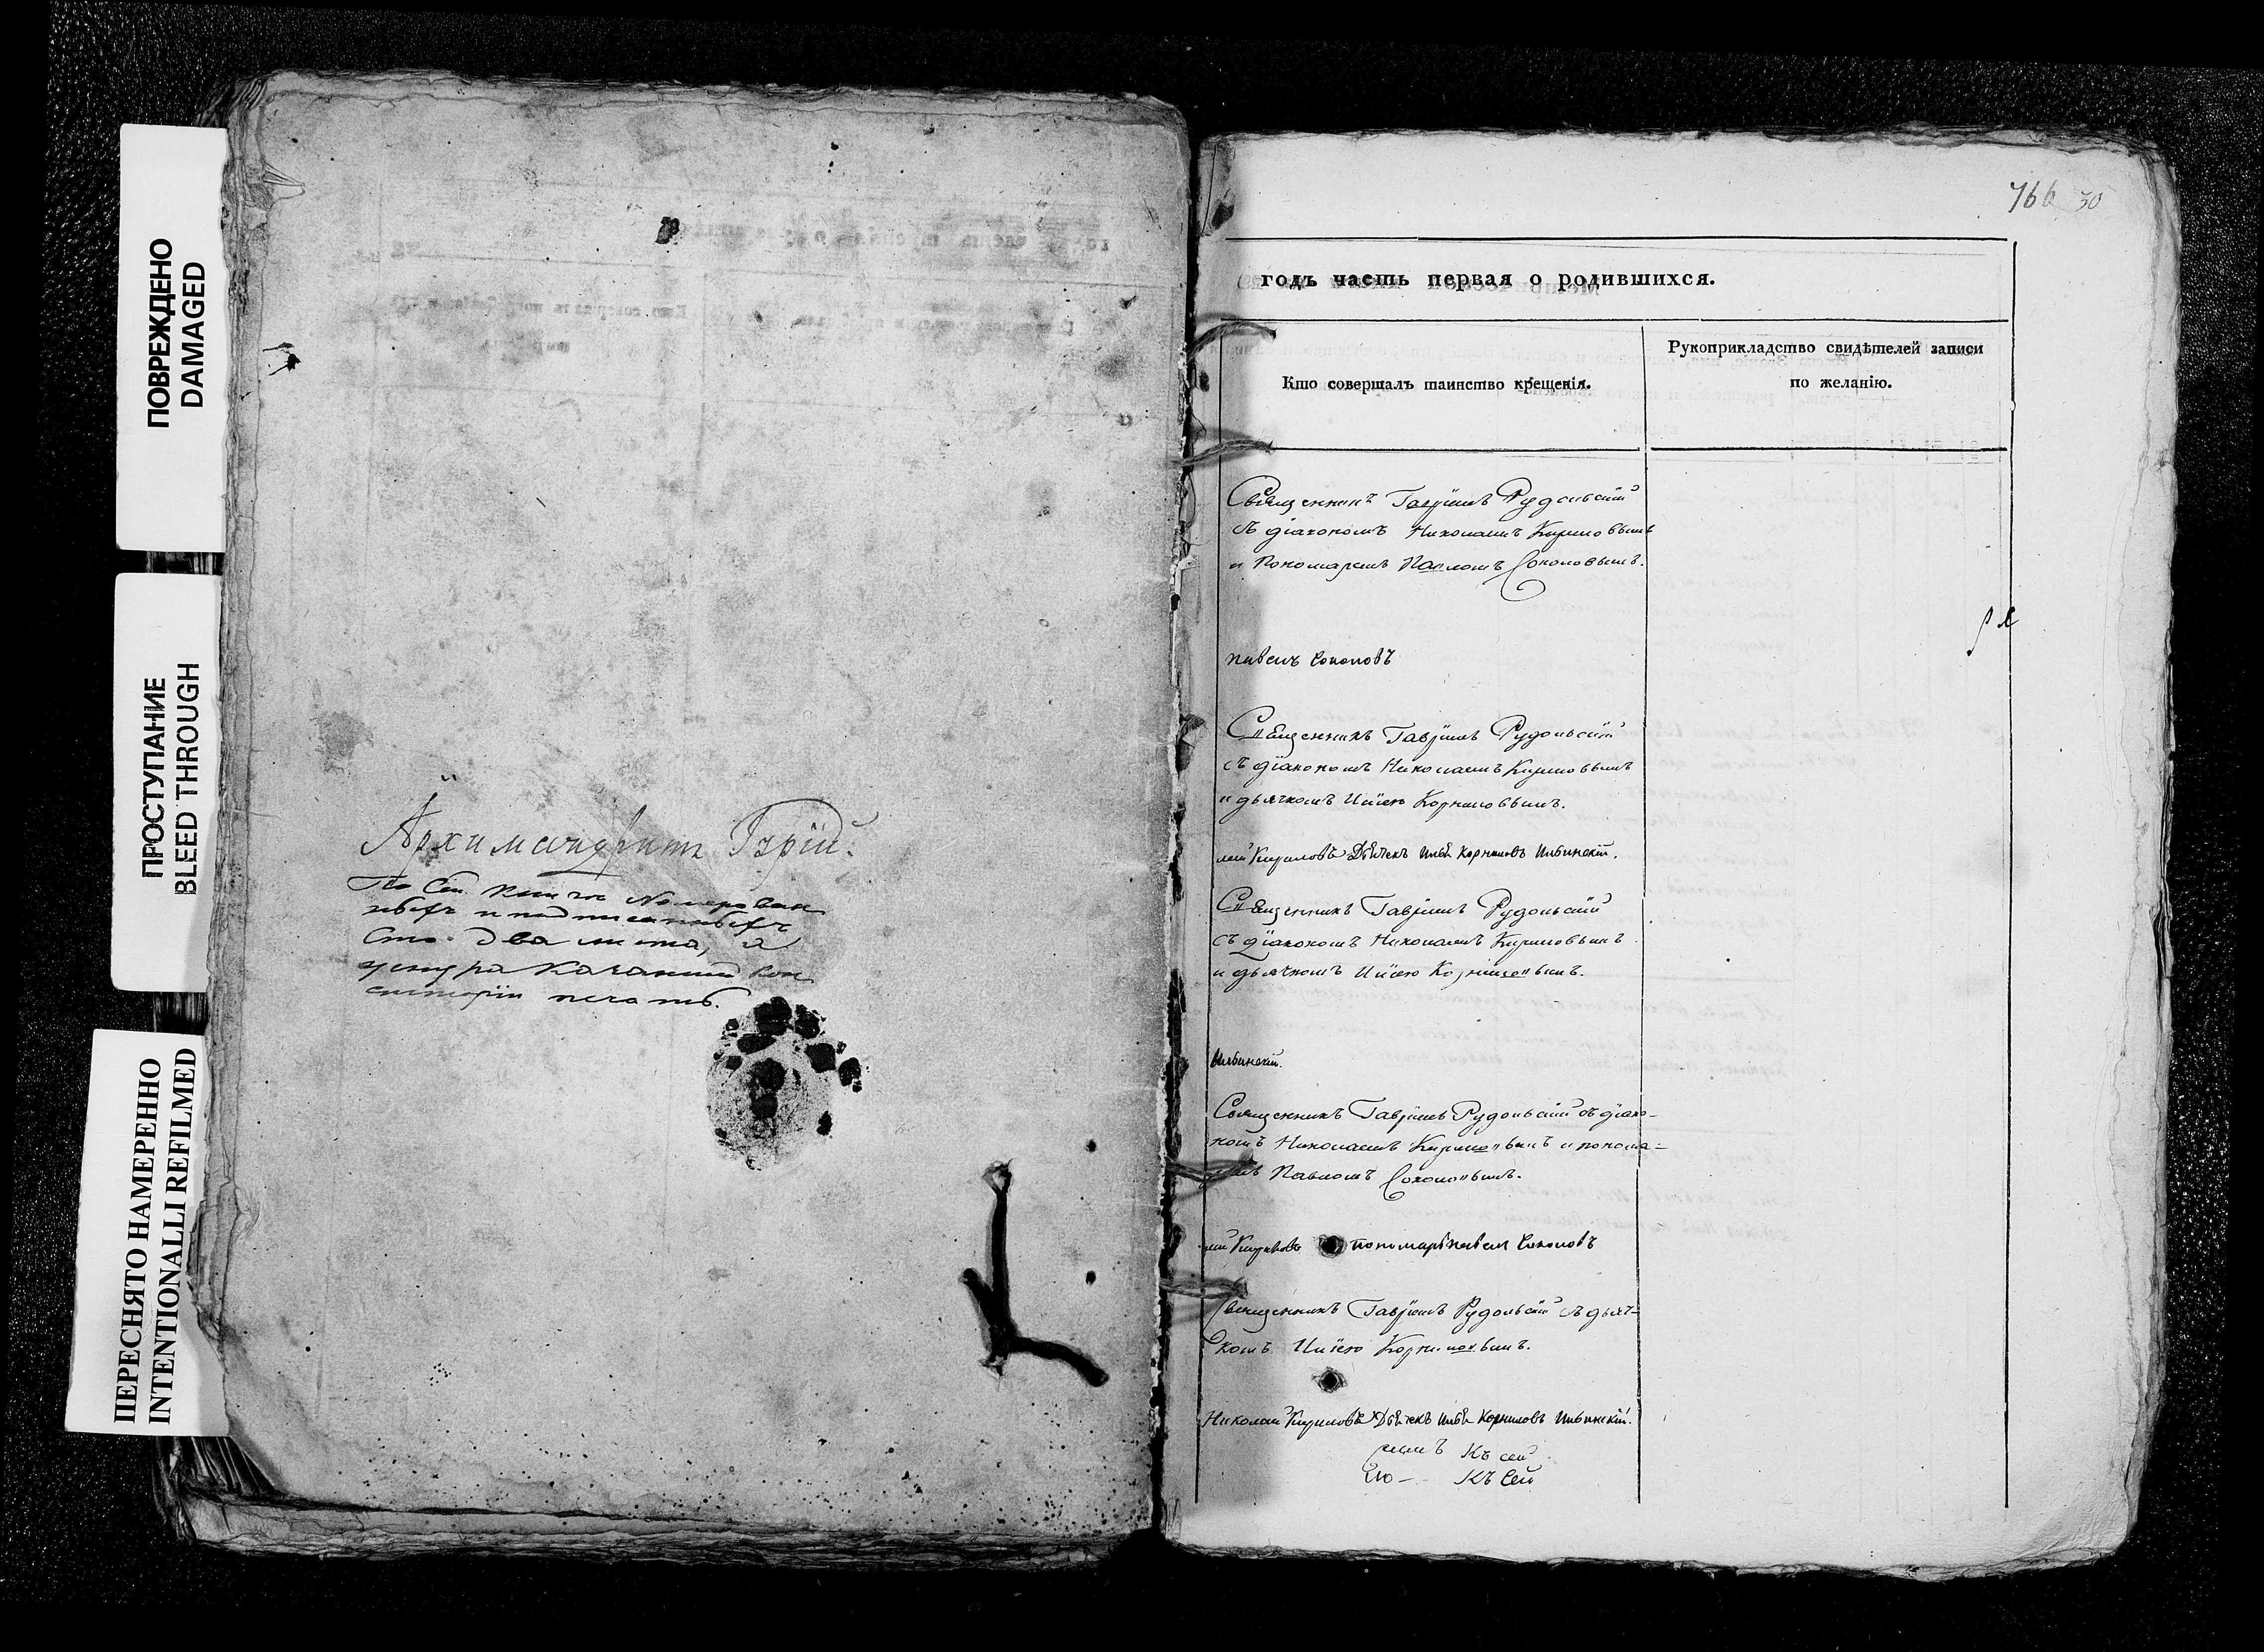 ПОВРЕЖДЕНО
DAMAGED
ПРОСТУПАНИЕ
BLEED THROUGH
ПЕРЕСНЯТО НАМЕРЕННО
INTENTIONALLI REFILMED
Архимандритъ Гурій.
Въ сей книгѣ номерован
ныхъ и подписанныхъ
сто два листа, и
у снура Казанской Кон
систоріи печать.
766 30
годъ часть первая о родившихся.
Кто совершалъ таинство крещенія.
Рукоприкладство свидѣтелей записи
по желанію.
Священникъ Гавріилъ Рудольскій
съ діакономъ Николаемъ Кириловымъ
и Пономаремъ Павломъ Соколовымъ.
Павелъ Соколовъ
Священникъ Гавріилъ Рудольскій
съ діакономъ Николаемъ Кириловымъ
и дьячкомъ Иліею Корниловымъ.
лай Кириловъ Дьячекъ Илья Корниловъ Ильинскій.
Священникъ Гавріилъ Рудольскій
съ діакономъ Николаемъ Кириловымъ
и дьячкомъ Иліею Корниловымъ.
Ильинскій.
Священникъ Гавріилъ Рудольскій съ діако-
номъ Николаемъ Кириловымъ и понома-
ремъ Павломъ Соколовымъ.
лай Кириловъ пономарь Павелъ Соколовъ
Священникъ Гавріилъ Рудольскій съ дьяч-
комъ Иліею Корниловымъ.
Николай Кириловъ Дьячекъ Илья Корниловъ Ильинскій.
къ сей
къ сей